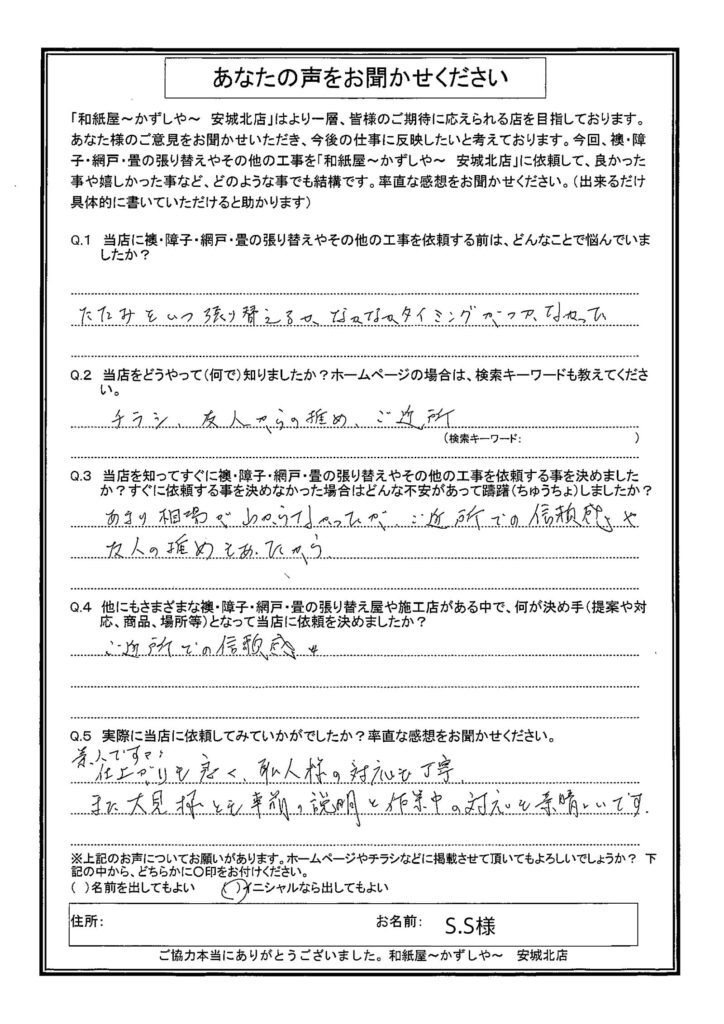 あなたの声をお聞かせください
「和紙屋～かずしや～　安城北店」はより一層、皆様のご期待に応えられる店を目指しております。
あなた様のご意見をお聞かせいただき、今後の仕事に反映したいと考えております。今回、襖・障
子・網戸・畳の張り替えやその他の工事を「和紙屋～かずしや～　安城北店」に依頼して、良かった
事や嬉しかった事など、どのような事でも結構です。率直な感想をお聞かせください。（出来るだけ
具体的に書いていただけると助かります）
Q.1　当店に襖・障子・網戸・畳の張り替えやその他の工事を依頼する前は、どんなことで悩んでいま
したか？
たたみをいつ張り替えるか、なかなかタイミングがつかなかった
Q.2　当店をどうやって（何で）知りましたか？ホームページの場合は、検索キーワードも教えてくださ
い。
チラシ、友人からの推め、ご近所
（検索キーワード：　　　　）
Q.3　当店を知ってすぐに襖・障子・網戸・畳の張り替えやその他の工事を依頼する事を決めました
か？すぐに依頼する事を決めなかった場合はどんな不安があって躊躇（ちゅうちょ）しましたか？
あまり相場がわからなかったが、ご近所での信頼感や
友人の推めもあったから
Q.4　他にもさまざまな襖・障子・網戸・畳の張り替え屋や施工店がある中で、何が決め手（提案や対
応、商品、場所等）となって当店に依頼を決めましたか？
ご近所での信頼感
Q.5　実際に当店に依頼してみていかがでしたか？率直な感想をお聞かせください。
素人ですが
仕上がりも良く、職人様の対応も丁寧、
また大見様とも事前の説明と作業中の対応も素晴しいです。
※上記のお声についてお願いがあります。ホームページやチラシなどに掲載させて頂いてもよろしいでしょうか？　下
記の中から、どちらかに○印をお付けください。
（　）名前を出してもよい　　（○）イニシャルなら出してもよい
住所：　　お名前：　S.S様
ご協力本当にありがとうございました。和紙屋～かずしや～　安城北店